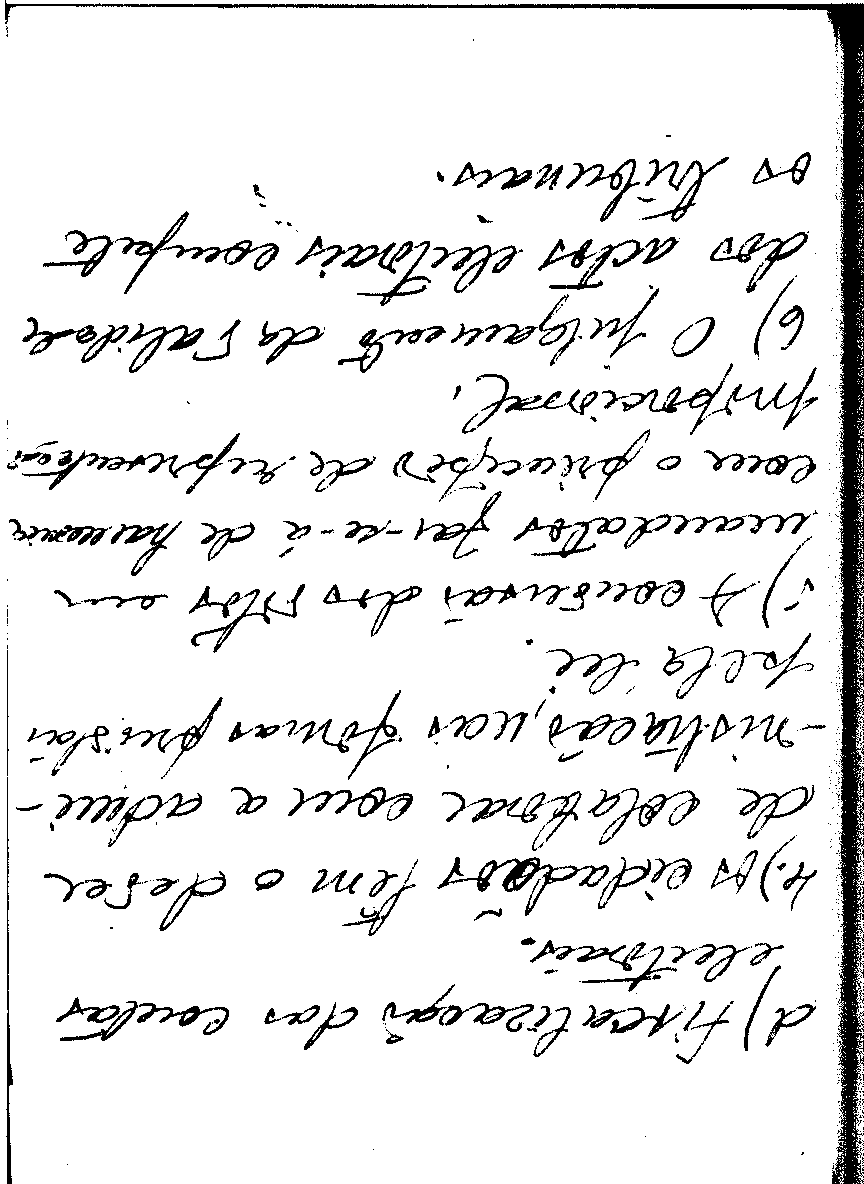 d) fiscalização das contas
eleitorais.
4.) Os cidadãos têm o dever
de colaborar com a admi-
-nistração, nas formas previstas
pela lei.
5) A conversão dos votos em
mandatos far-se-á de harmonia
com o princípio de representação
proporcional.
6) O julgamento da validade
dos actos eleitorais compete
os tribunais.